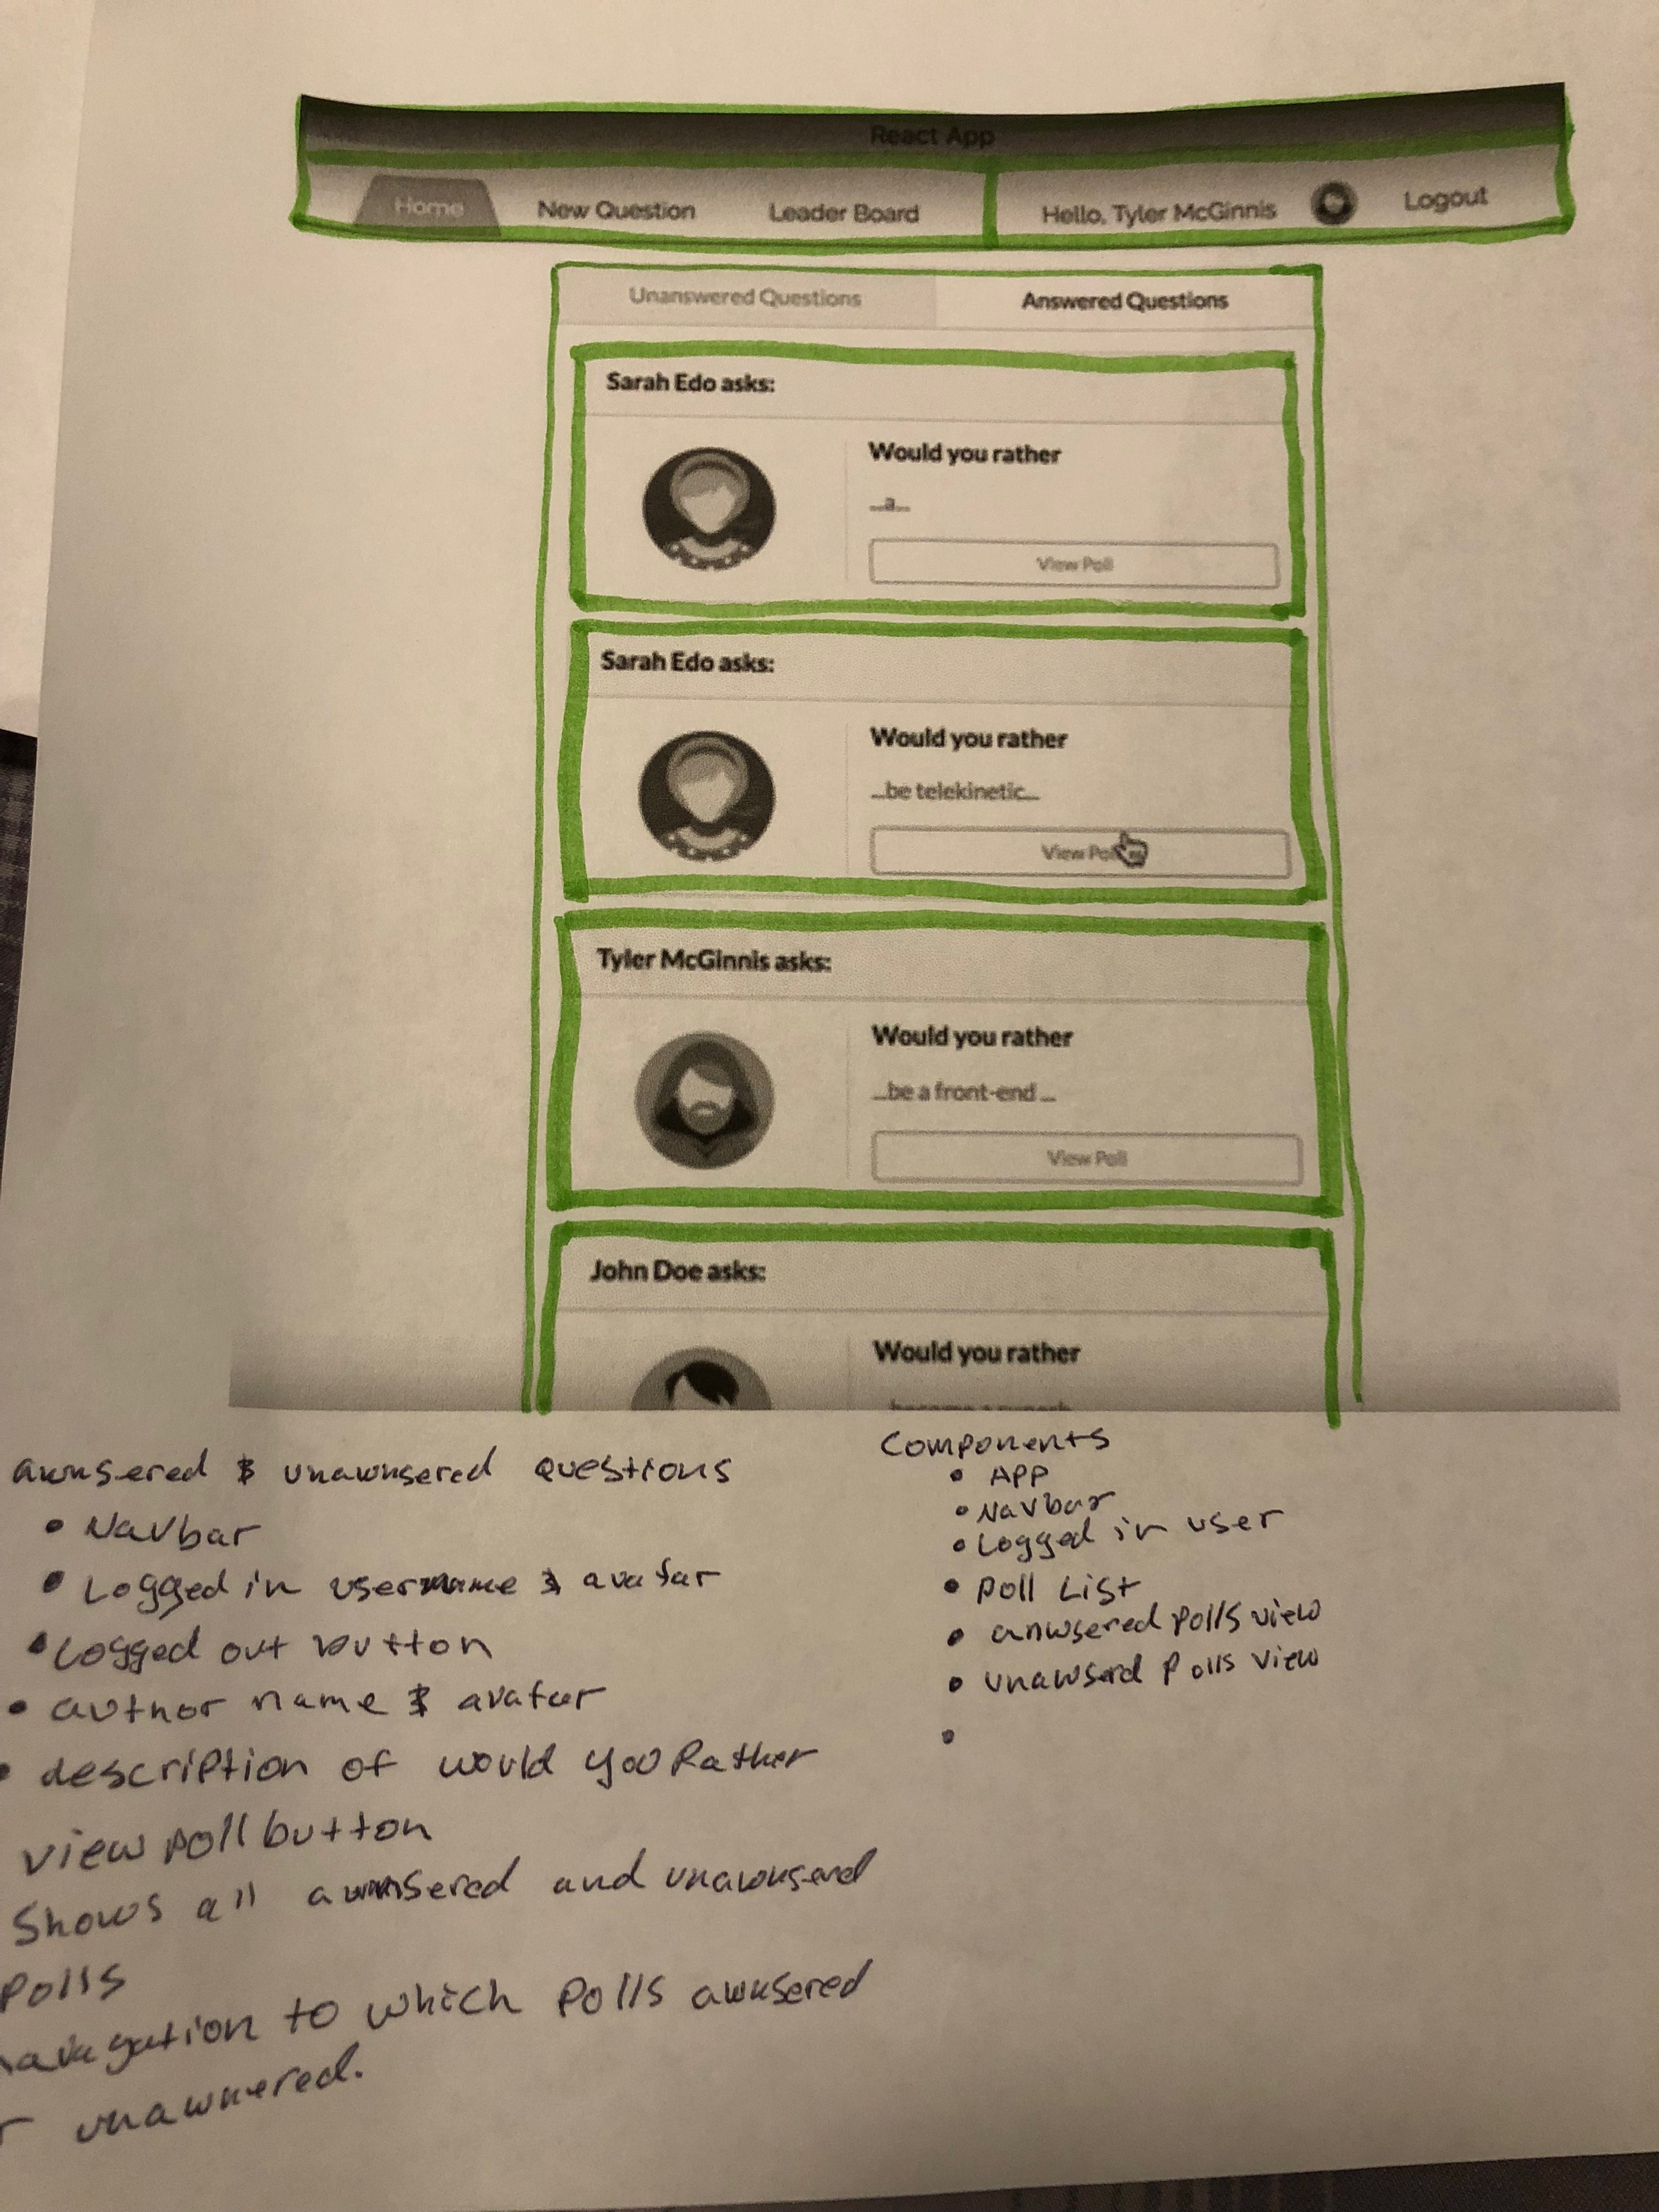 React App
Home New Question Leader Board Hello, Tyler McGinnis Logout
Unanswered Questions Answered Questions
Sarah Edo asks:
Would you rather
...a...
View Poll
Sarah Edo asks:
Would you rather
...be telekinetic...
View Poll
Tyler McGinnis asks:
Would you rather
...be a front-end ...
View Poll
John Doe asks:
Would you rather
awnsered & unawnsered questions
• Navbar
• Logged in username & avatar
• Logged out button
• author name & avatar
• description of would you Rather
view poll button
Shows all awnsered and unawnsered
Polls
to which polls awnsered
unawnered.
Components
• APP
• Navbar
• Logged in user
• Poll List
• anwsered polls view
• unawserd Polls view
•